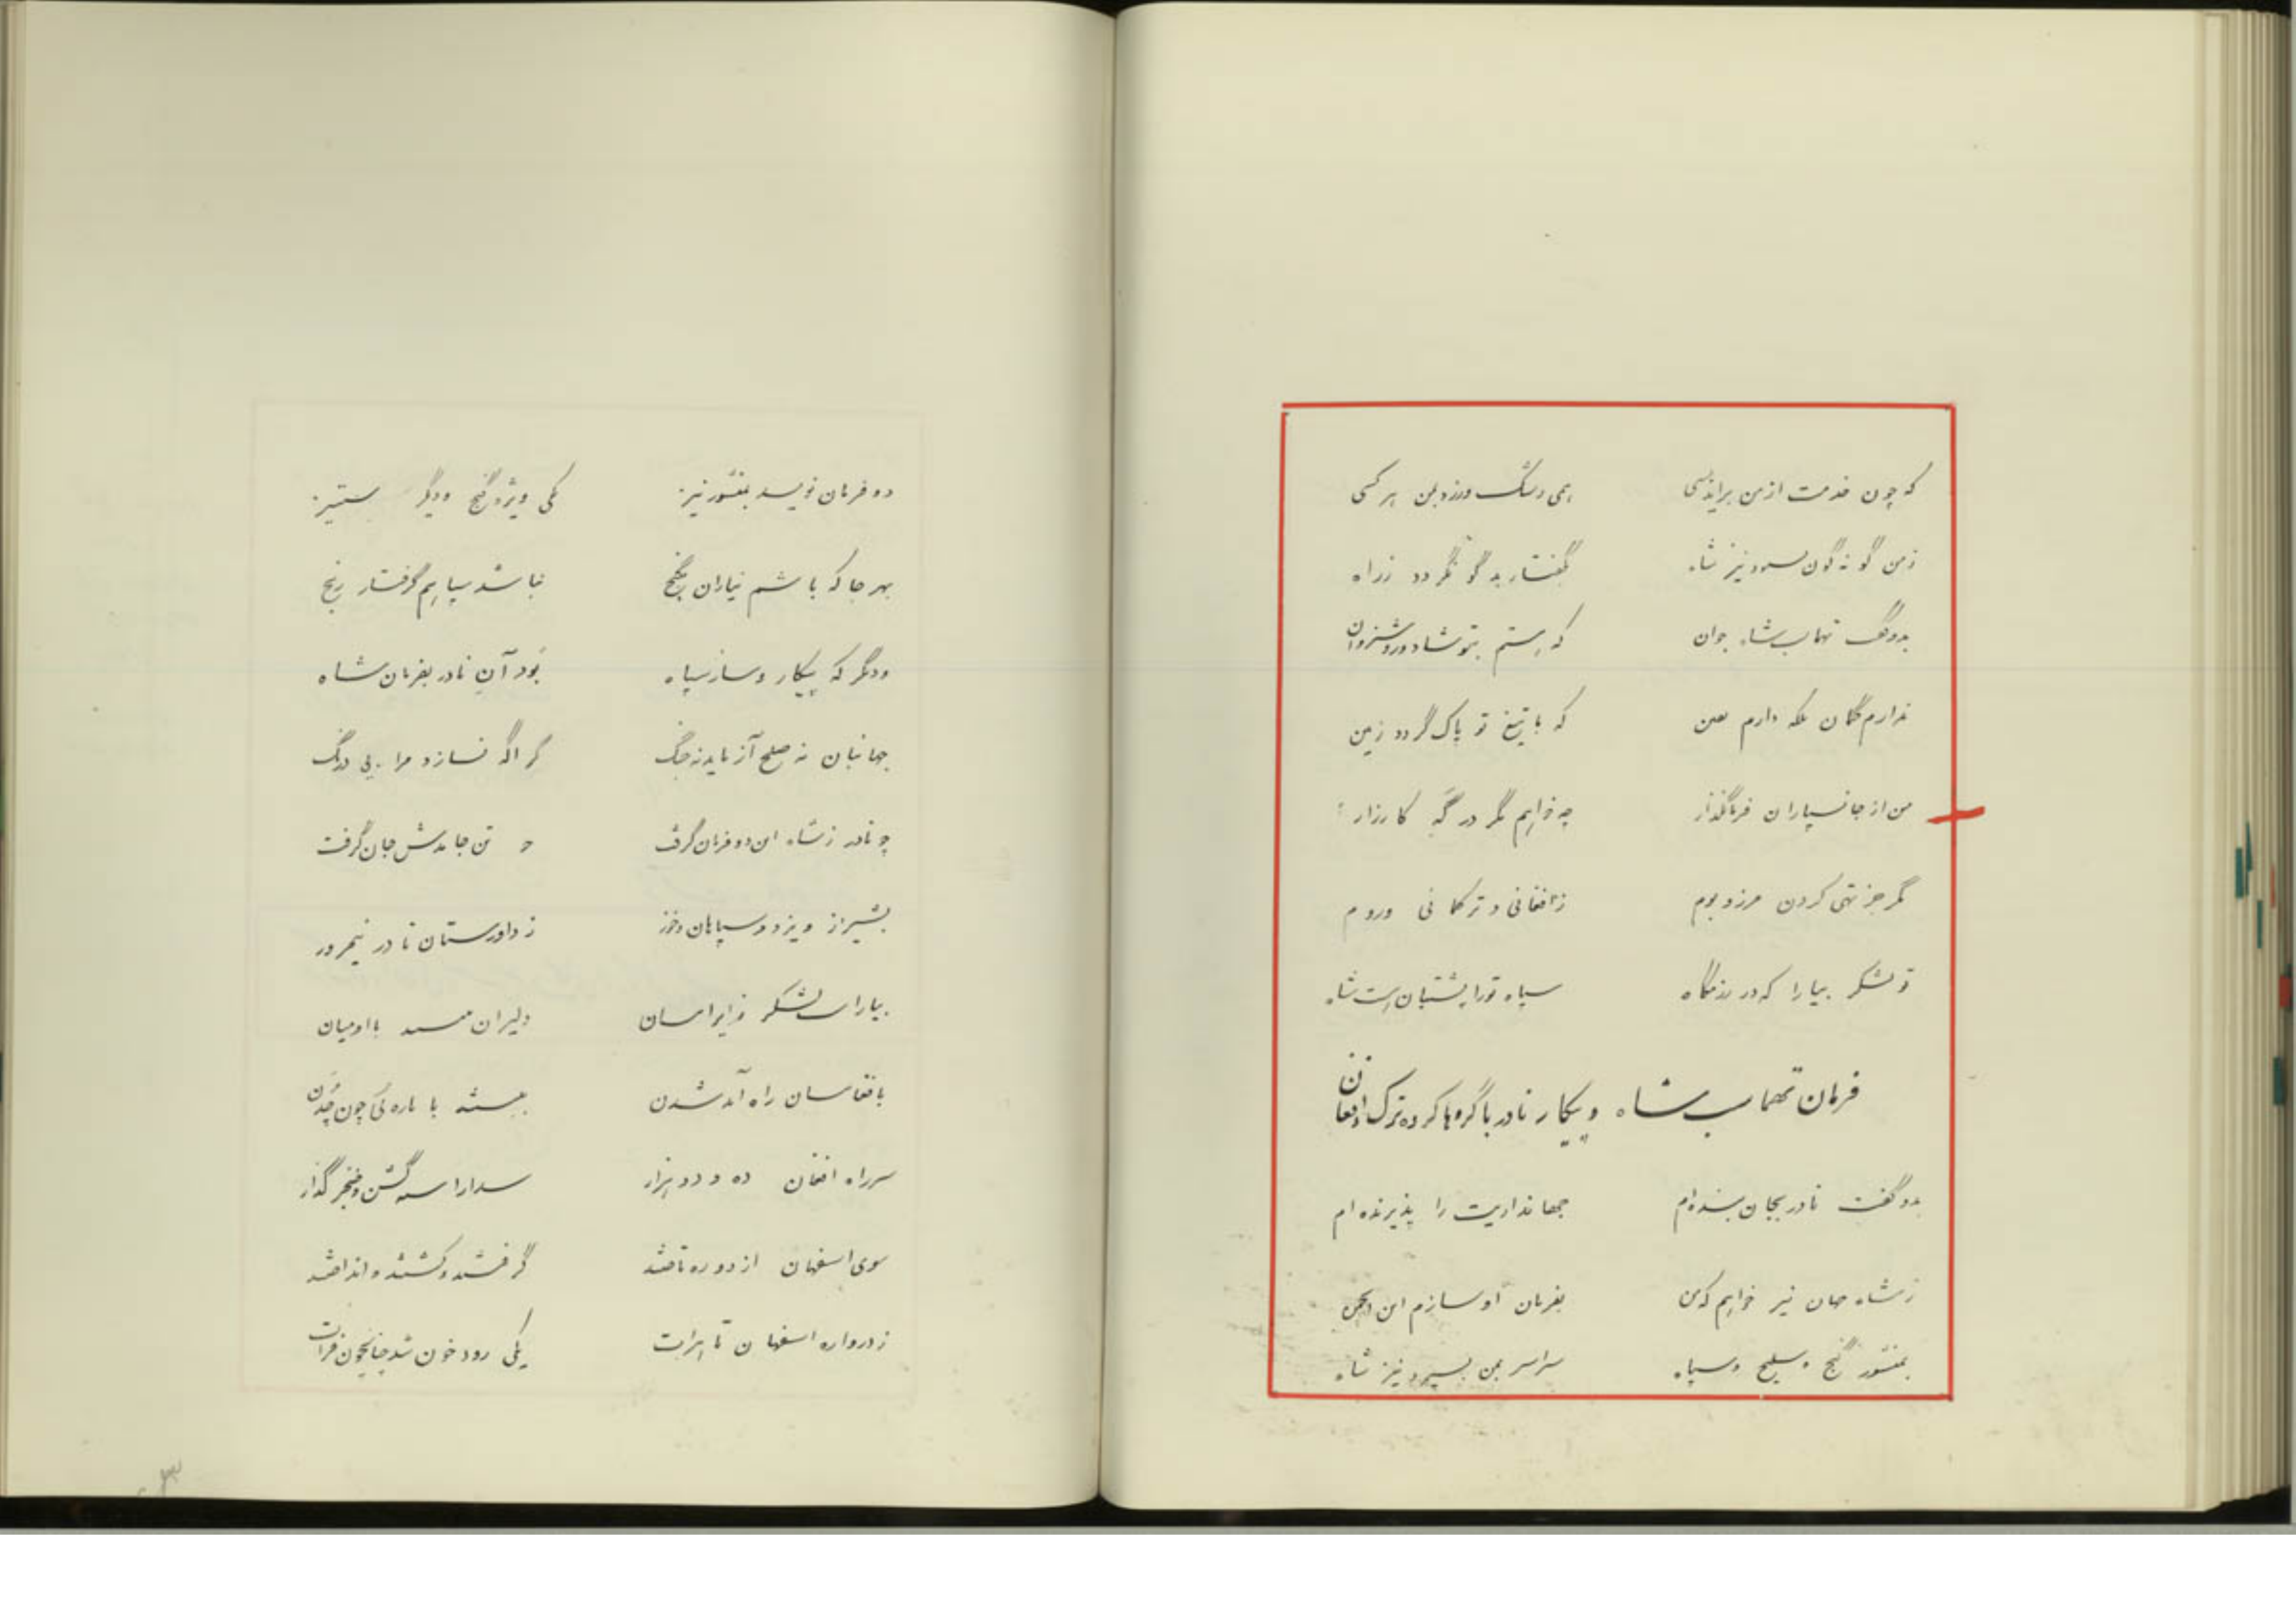 که چون خدمت از من براید بسی همی رشک ورزد بمن هر کسی
ز من گونه گون بسمود نیز شاه بگفتار بد گو نگردد ز راه
بدو گفت تهماسب شاه جوان که رستم بتو شاد و روشنروان
ندارم گمان بلکه دارم یقین که با تیغ تو پاک گردد زمین
من از جانسپاران فرمانگذار چه خواهم مگر در گه کارزار
مگر جز تهی کردن مرز و بوم ز افغانی و ترکمانی و روم
تو لشکر بیارا که در رزمگاه سپاه تو را پشتیبان است شاه
فرمان تهماسب شاه و پیکار نادر با گروها کرده ترک و افغان
بدو گفت نادر بجان بنده‌ام جهانداریت را پذیرنده ام
ز شاه جهان نیز خواهم که من بفرمان او سازم این انجمن
بمنشور گنج و سلیح و سپاه سراسر بمن بسپرد نیز شاه
دو فرمان نویسد بمنشور نیز یکی ویژه گنج و دیگر ستیز
بهر جا که باشم نیاران بگنج نباشد سپاهم گرفتار رنج
و دیگر که پیکار و ساز سپاه بود آن نادر بفرمان شاه
جهانبان نه صلح آزماید نه جنگ گر آگه نسازد مرا بی درنگ
چو نادر ز شاه این دو فرمان گرفت تن جامدش جان گرفت
بشیراز و یزد و سپاهان و خوز ز داورستان تا در نیمروز
بیاراست لشکر ز ایرانیان دلیران با او میان
بافغانستان راه آمد شدن ببستند با باره‌ئی چون چدن
سر راه افغان ده و دو هزار گشن و خنجر گذار
سوی اسفهان از دو ره تاختند گرفتند و کشتند و انداختند
ز دروازه اسفهان تا هرات یکی رود خون شد چنانچون فرات